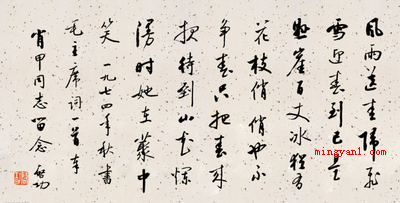 風雨送春歸飛
雪迎春到已是
懸崖百丈冰猶有
花枝俏俏也不
争春只把春來
報待到山花爛
漫时她在叢中
笑 一九七四年秋書
毛主席词一首奉
肖甲同志留念 启功
mingyan1.com